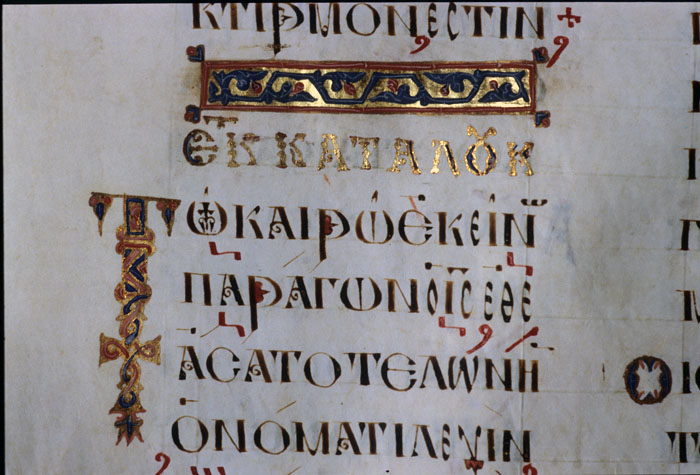 ΚΤΙΡΜΟΝΕϹΤΙΝ
ΕΚ ΚΑΤΑ ΛΟΥΚ
ΤΩ ΚΑΙΡΩ ΕΚΕΙΝ
ΠΑΡΑΓΩΝ Ο ΙϹ ΕΘΕ
ΑϹΑΤΟ ΤΕΛΩΝΗ
ΟΝΟΜΑΤΙ ΛΕΥΙΝ